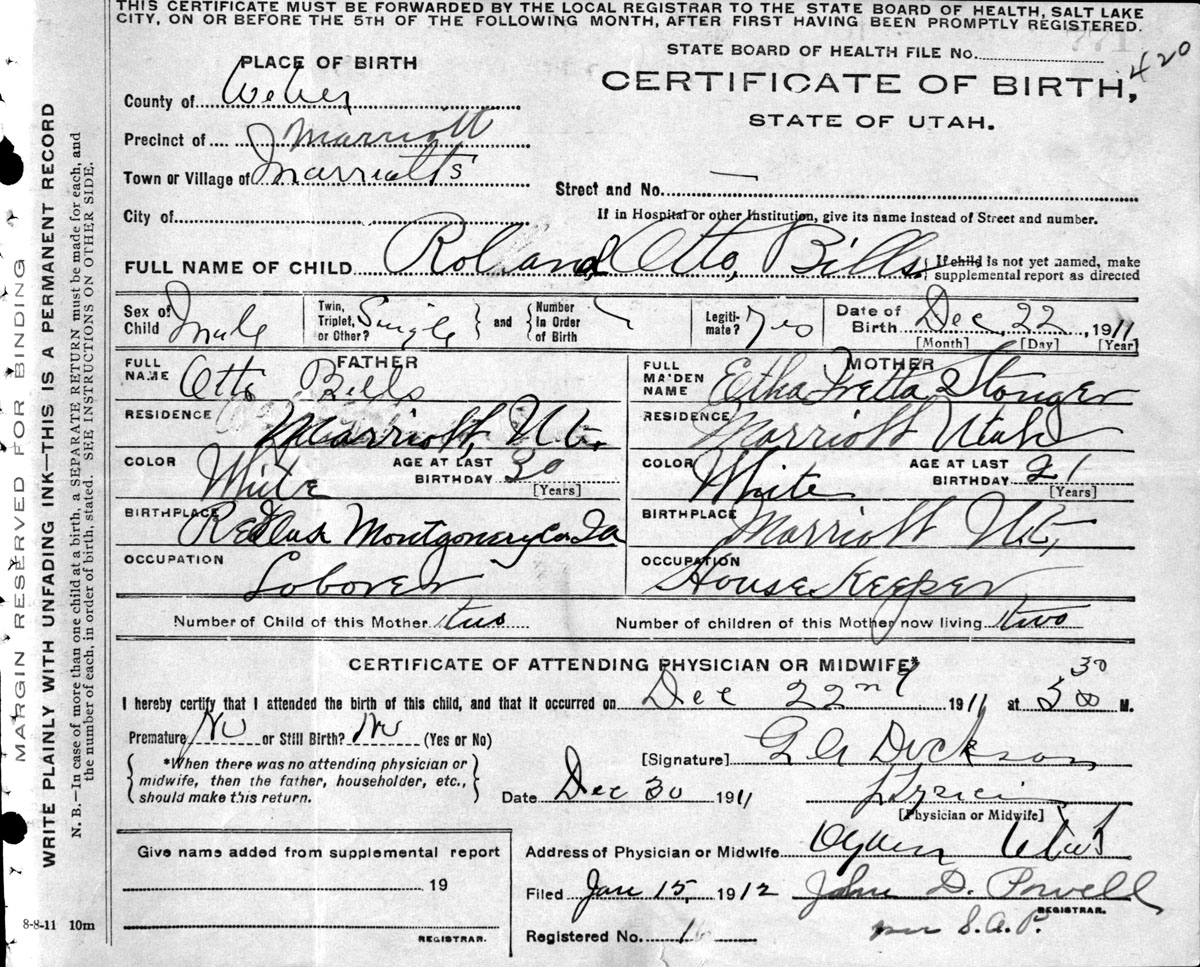 THIS CERTIFICATE MUST BE FORWARDED BY THE LOCAL REGISTRAR TO THE STATE BOARD OF HEALTH, SALT LAKE
CITY, ON OR BEFORE THE 5TH OF THE FOLLOWING MONTH, AFTER FIRST HAVING BEEN PROMPTLY REGISTERED.
MARGIN RESERVED FOR BINDING
WRITE PLAINLY WITH UNFADING INK—THIS IS A PERMANENT RECORD
N. B.—In case of more than one child at a birth, a SEPARATE RETURN must be made for each, and
the number of each, in order of birth, stated. SEE INSTRUCTIONS ON OTHER SIDE.
STATE BOARD OF HEALTH FILE No.
420
CERTIFICATE OF BIRTH,
STATE OF UTAH.
PLACE OF BIRTH
County of Weber
Precinct of Marriott
Town or Village of Marriotts
Street and No. —
City of
If in Hospital or other Institution, give its name instead of Street and number.
FULL NAME OF CHILD Roland Otto Bills { If child is not yet named, make
supplemental report as directed
Sex of Child Male
Twin, Triplet, or Other? Single } and { Number In Order of Birth
Legitimate? Yes
Date of Birth Dec, 22, 1911
[Month] [Day] [Year]
FATHER
FULL NAME Otto Bills
RESIDENCE Marriott, Ut.
COLOR White AGE AT LAST BIRTHDAY 30 [Years]
BIRTHPLACE Montgomery Co. Ia
OCCUPATION Loborer
MOTHER
FULL MAIDEN NAME Etha Stonger
RESIDENCE Marriott Utah
COLOR White AGE AT LAST BIRTHDAY 21 [Years]
BIRTHPLACE Marriott Ut,
OCCUPATION House Keeper
Number of Child of this Mother two Number of children of this Mother now living two
CERTIFICATE OF ATTENDING PHYSICIAN OR MIDWIFE*
I hereby certify that I attended the birth of this child, and that it occurred on Dec 22nd 1911 at M.
Premature No or Still Birth? No (Yes or No)
{ *When there was no attending physician or
midwife, then the father, householder, etc.,
should make this return. }
[Signature] Dickson
Date Dec 30 1911
[Physician or Midwife]
Address of Physician or Midwife Ogden Utah
Filed Jan 15, 1912 John D. Powell
REGISTRAR.
per S.A.P.
Registered No.
Give name added from supplemental report
19
REGISTRAR.
8-8-11 10m